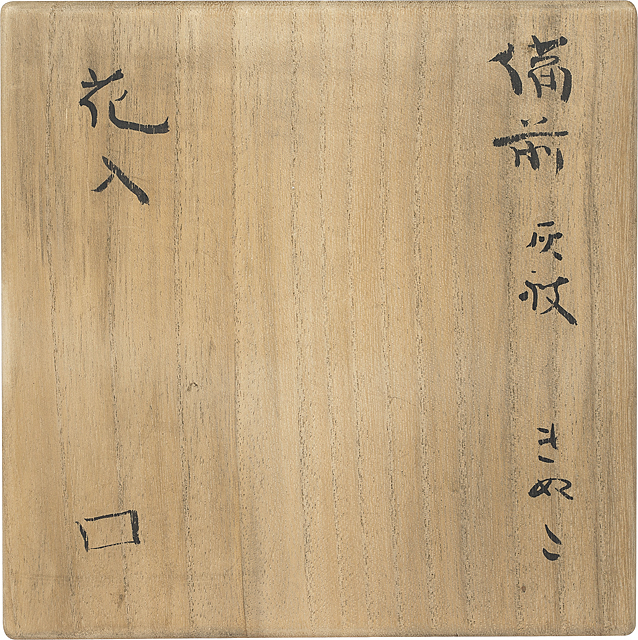 備前 灰被 きぬこ
花入 口